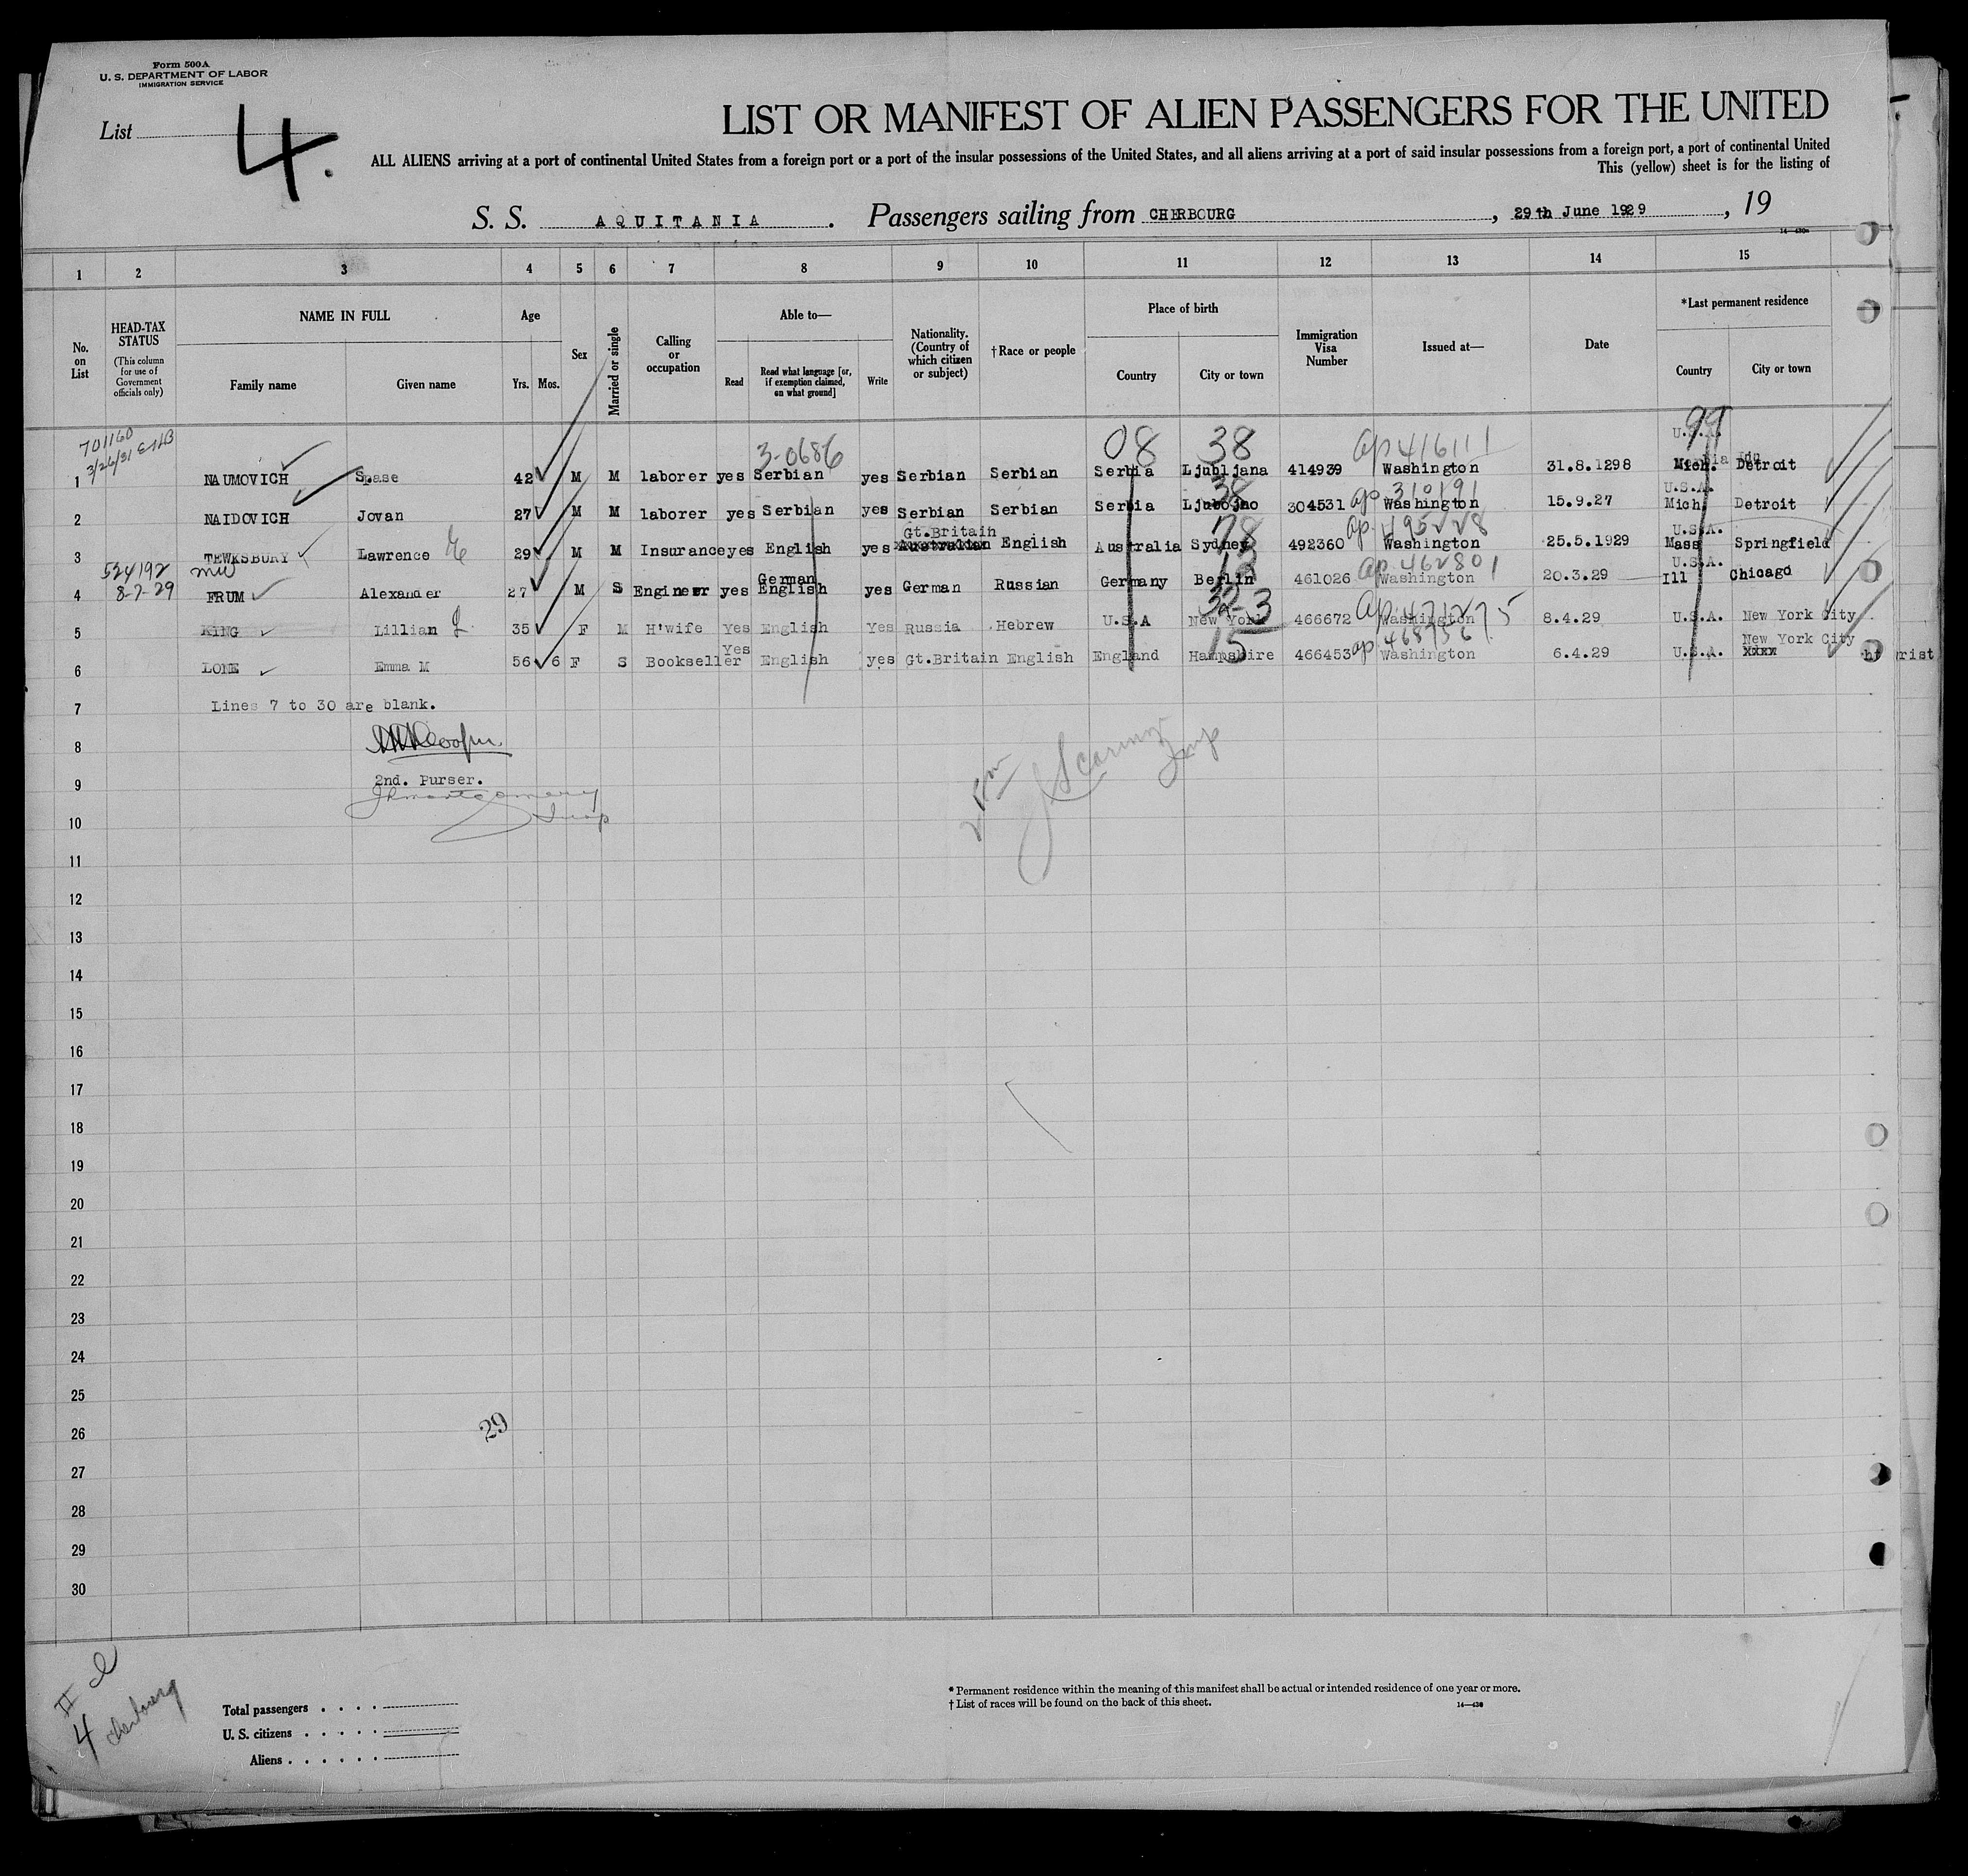 Form 500A
U. S. DEPARTMENT OF LABOR
IMMIGRATION SERVICE
List 4.
LIST OR MANIFEST OF ALIEN PASSENGERS FOR THE UNITED
ALL ALIENS arriving at a port of continental United States from a foreign port or a port of the insular possessions of the United States, and all aliens arriving at a port of said insular possessions from a foreign port, a port of continental United
This (yellow) sheet is for the listing of
S. S. AQUITANIA. Passengers sailing from CHERBOURG, 29th June 1929, 19
14—430a
1 2 3 4 5 6 7 8 9 10 11 12 13 14 15
No. on List
HEAD-TAX STATUS
(This column for use of Government officials only)
NAME IN FULL
Family name Given name
Age
Yrs. Mos.
Sex
Married or single
Calling or occupation
Able to—
Read Read what language [or, if exemption claimed, on what ground] Write
Nationality. (Country of which citizen or subject)
†Race or people
Place of birth
Country City or town
Immigration Visa Number
Issued at—
Date
*Last permanent residence
Country City or town
701160
3/26/31
3-0686 08 38 ap 416111 99
U.S.A.
1 NAUMOVICH Spase 42 M M laborer yes Serbian yes Serbian Serbian Serbia Ljubljana 414939 Washington 31.8.1298 Mich. Detroit
38 ap 310191 U.S.A.
2 NAIDOVICH Jovan 27 M M laborer yes Serbian yes Serbian Serbian Serbia Ljubojno 304531 Washington 15.9.27 Mich. Detroit
Gt.Britain 78 ap 495228 U.S.A.
3 TEWKSBURY Lawrence E 29 M M Insurance yes English yes Australian English Australia Sydney 492360 Washington 25.5.1929 Mass Springfield
524192 mw German 12 ap 462801 U.S.A.
8-7-29
4 FRUM Alexander 27 M S Engineer yes English yes German Russian Germany Berlin 461026 Washington 20.3.29 Ill Chicago
32-3 ap 471275
5 KING Lillian L 35 F M H'wife Yes English Yes Russia Hebrew U.S.A New York 466672 Washington 8.4.29 U.S.A. New York City
Yes 15 ap 468756 New York City
6 LONE Emma M 56 6 F S Bookseller English yes Gt.Britain English England Hampshire 466453 Washington 6.4.29 U.S.A. xxxx
rist
7 Lines 7 to 30 are blank.
8
9 2nd. Purser.
JHMontgomery
Insp
10
11
12
13
14
15
16
17
18
19
20
21
22
23
24
25
26
29
27
28
29
30
II
4 Cherbourg
Total passengers . . . .
U. S. citizens . . . . .
Aliens . . . . . .
* Permanent residence within the meaning of this manifest shall be actual or intended residence of one year or more.
† List of races will be found on the back of this sheet.
14—430